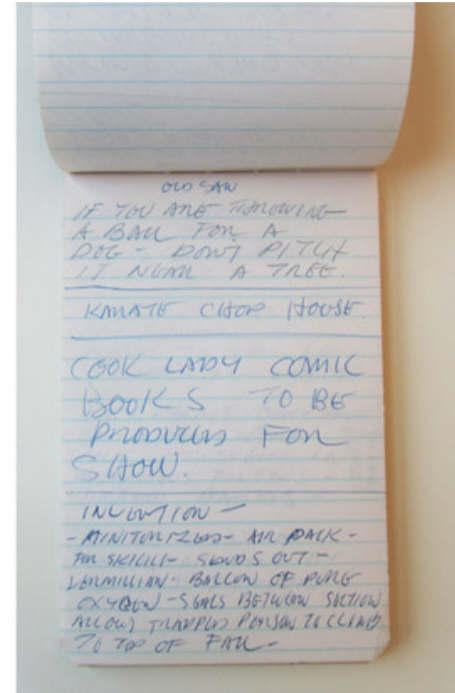 OLD SAW
IF YOU ARE THROWING
A BALL FOR A
DOG - DON'T PITCH
IT NEAR A TREE.
KARATE CHOP HOUSE.
COOK LADY COMIC
BOOKS TO BE
PRODUCED FOR
SHOW.
INVENTION -
- MINITURIZED - AIR PACK -
FOR SKIING - SENDS OUT -
- BALLOON OF PURE
OXYGEN - SEALS BETWEEN SUCTION
ALLOWS TRAPPED PERSON TO CLIMB
TO TOP OF